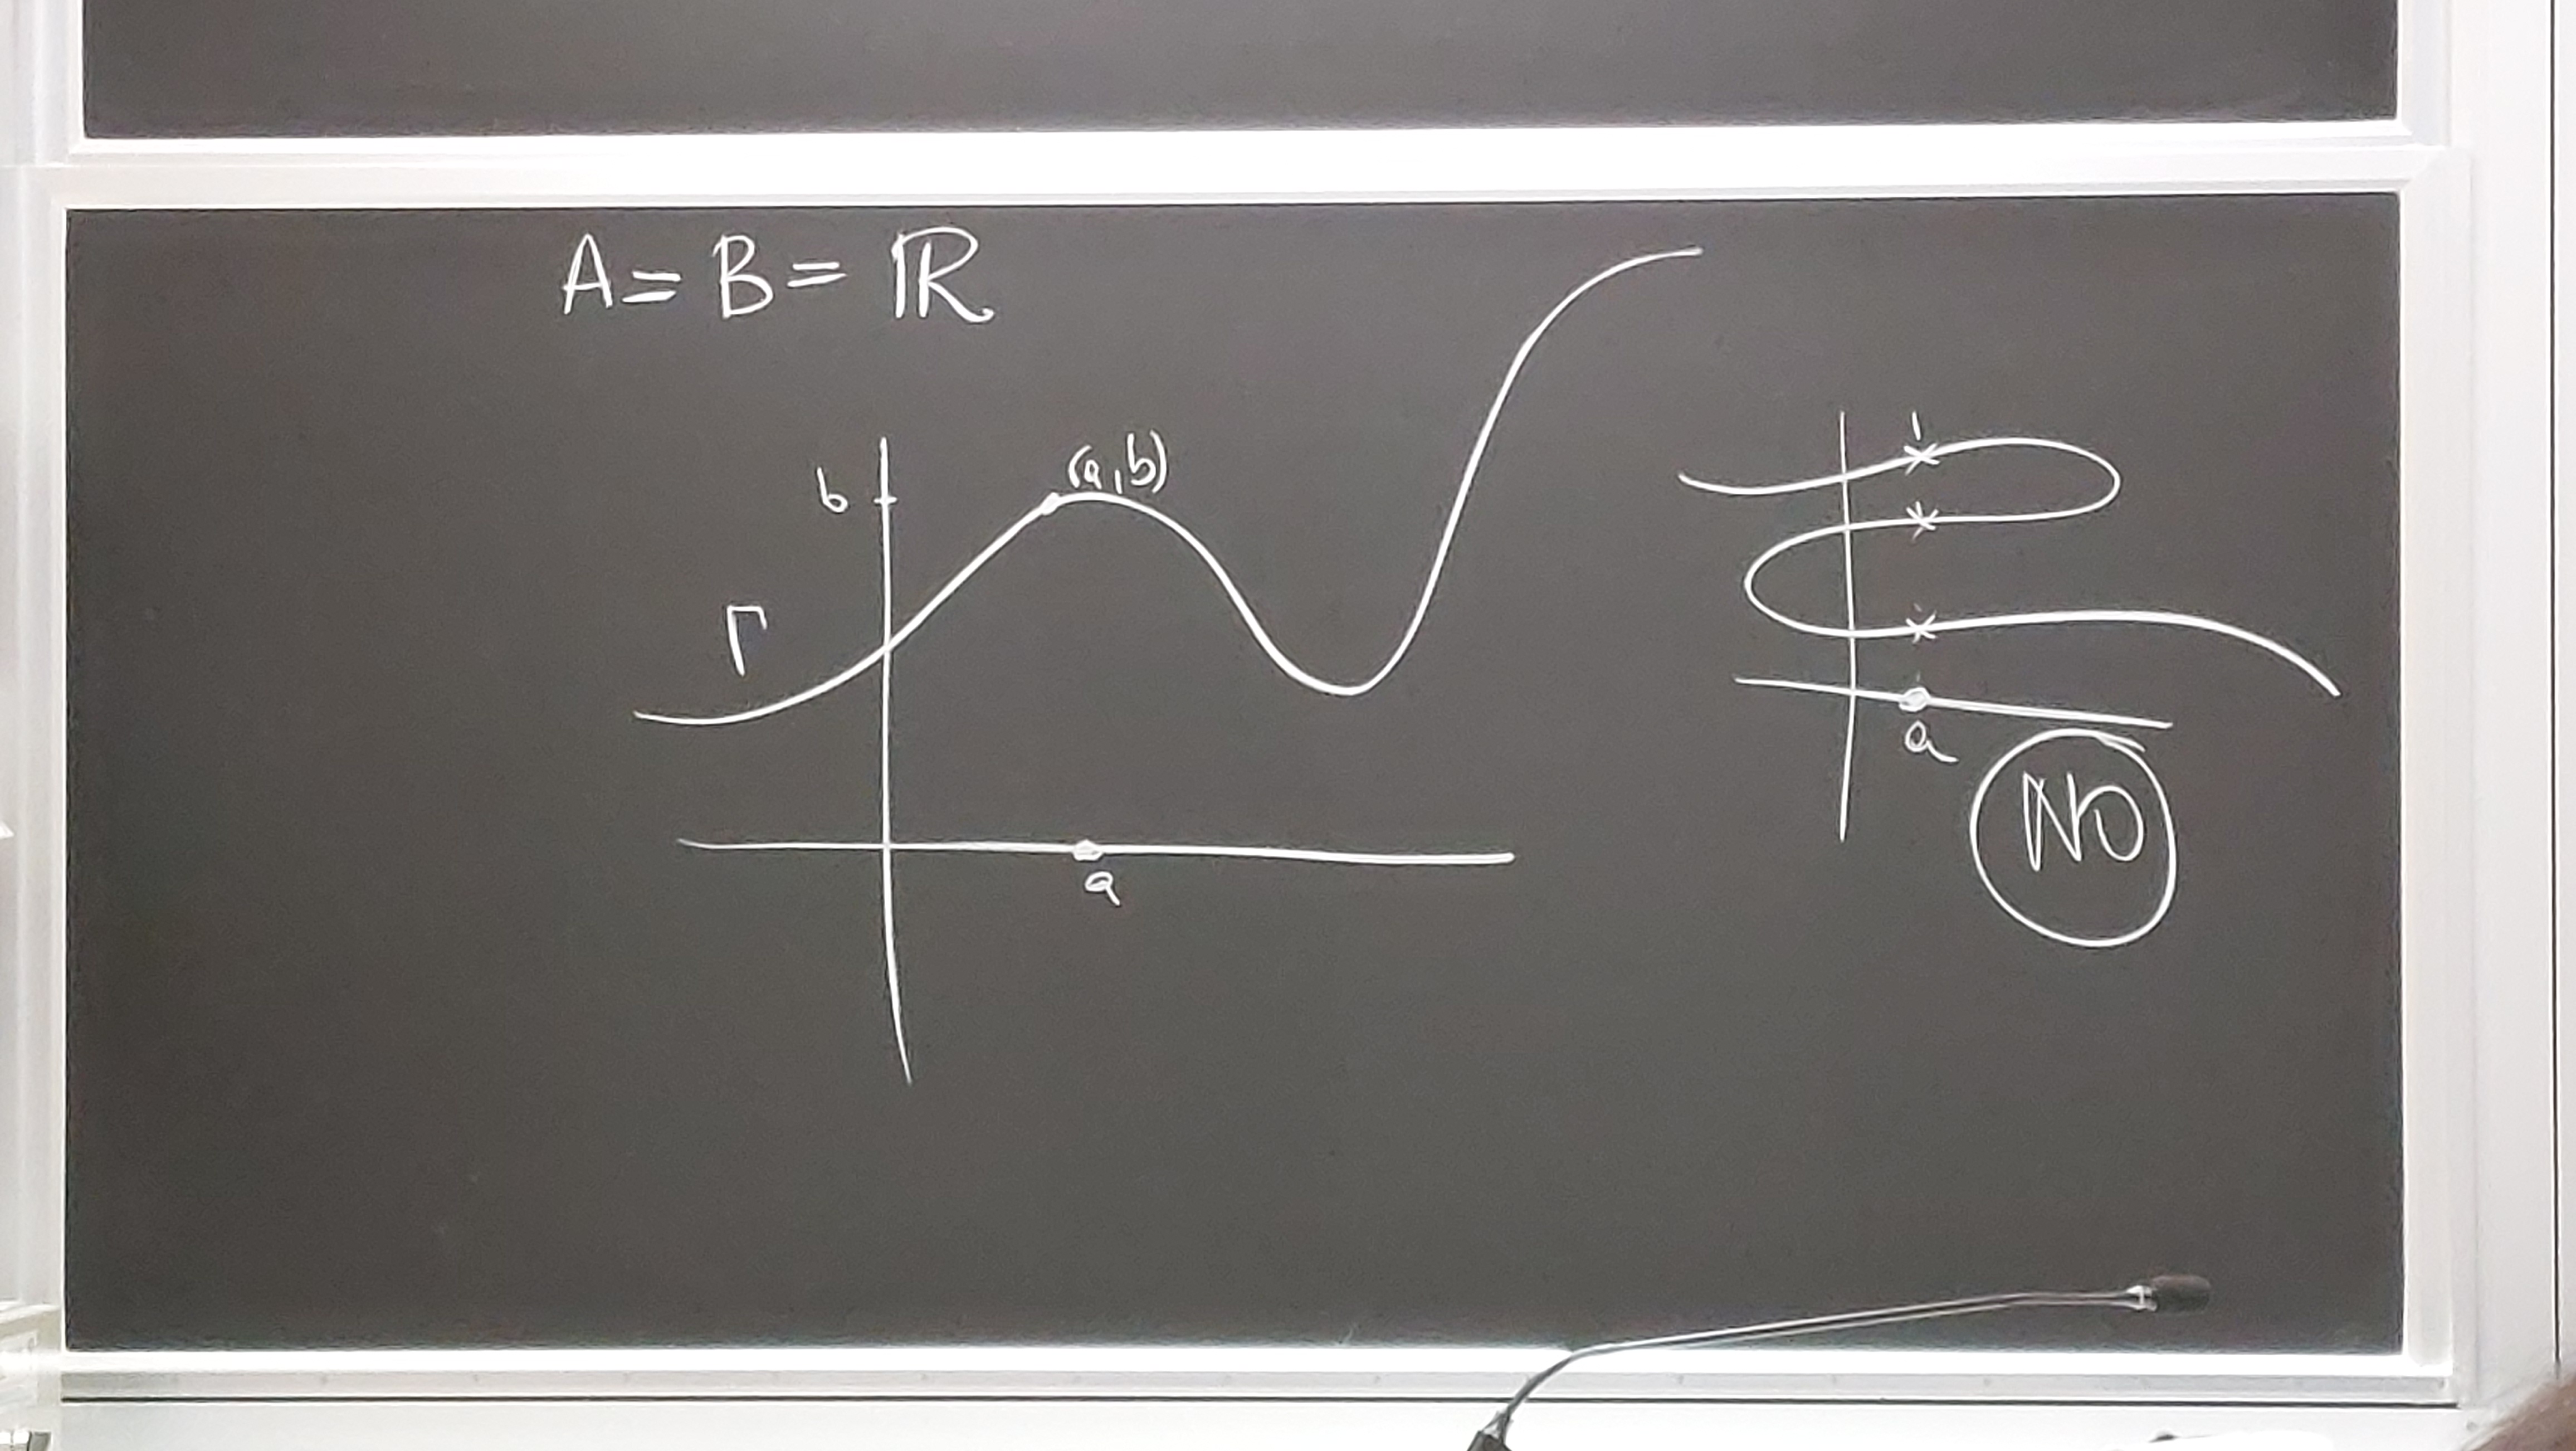 A = B = ℝ
b
(a,b)
Γ
a
a
NO